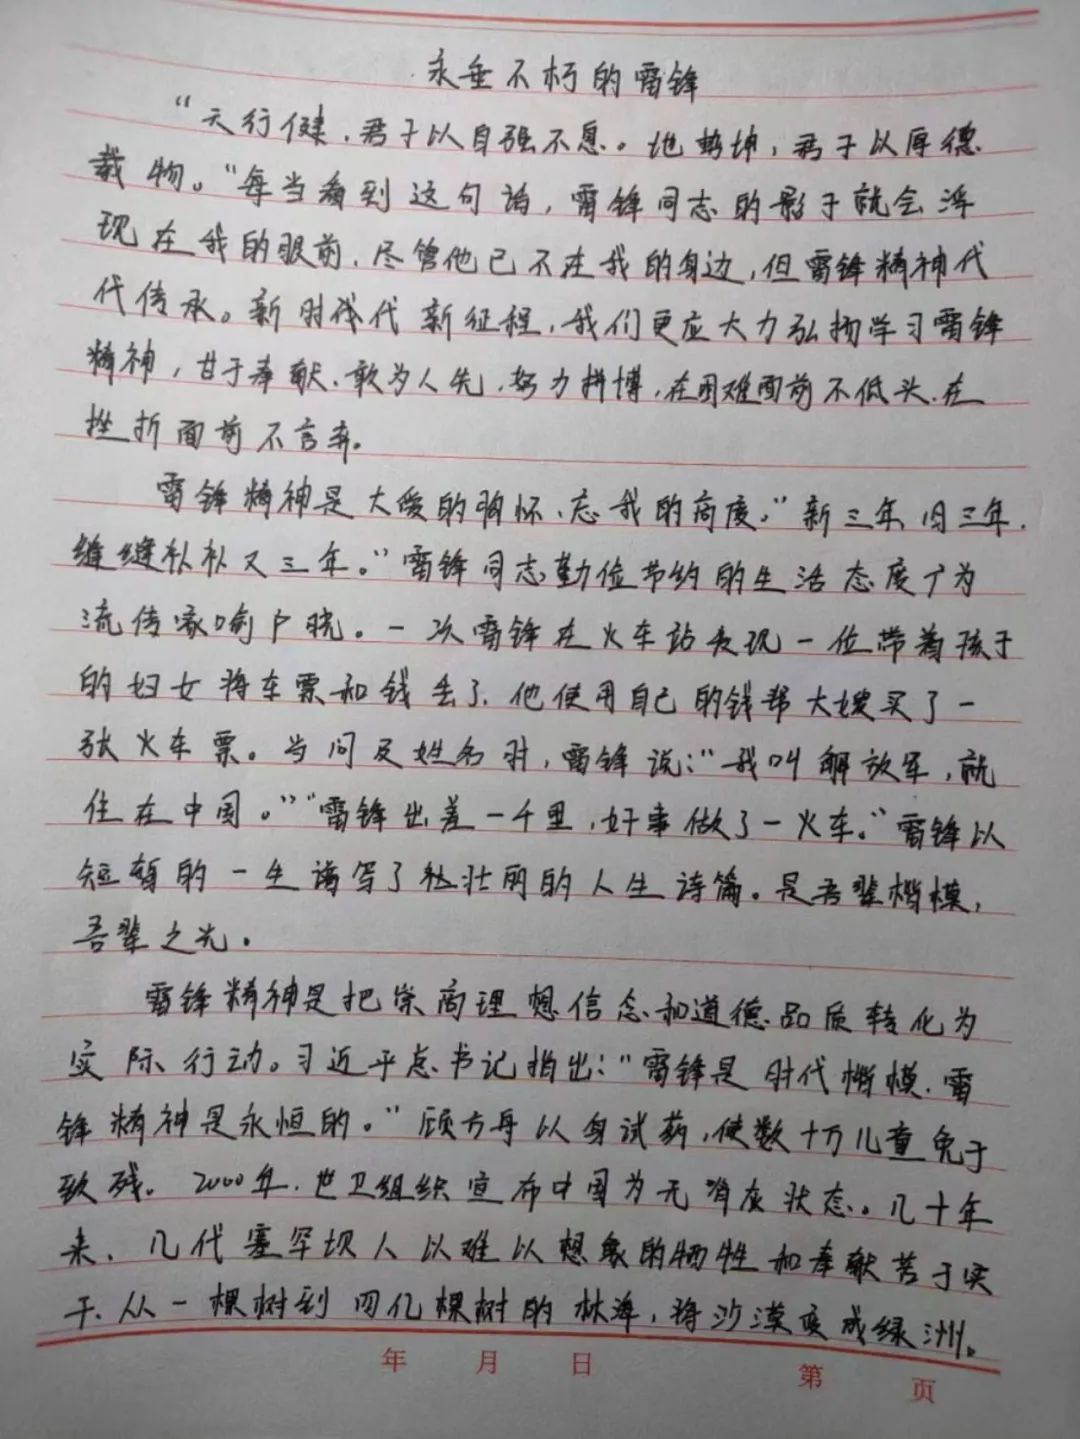 永垂不朽的雷锋
“天行健,君子以自强不息。地势坤,君子以厚德
载物。”每当看到这句话,雷锋同志的影子就会浮
现在我的眼前,尽管他已不在我的身边,但雷锋精神代
代传承。新时代新征程,我们更应大力弘扬学习雷锋
精神,甘于奉献、敢为人先,努力拼搏,在困难面前不低头,在
挫折面前不言弃。
雷锋精神是大爱的胸怀、忘我的高度。“新三年,旧三年,
缝缝补补又三年。”雷锋同志勤俭节约的生活态度广为
流传家喻户晓。一次雷锋在火车站发现一位带着孩子
的妇女将车票和钱丢了,他使用自己的钱帮大嫂买了一
张火车票。当问及姓名时,雷锋说:“我叫解放军,就
住在中国。”“雷锋出差一千里,好事做了一火车。”雷锋以
短暂的一生谱写了壮丽的人生诗篇。是吾辈楷模,
吾辈之光。
雷锋精神是把崇高理想信念和道德品质转化为
实际行动。习近平总书记指出:“雷锋是时代楷模,雷
锋精神是永恒的。”顾方舟以身试药,使数十万儿童免于
致残。2000年,世卫组织宣布中国为无脊灰状态。几十年
来,几代塞罕坝人以难以想象的牺牲和奉献苦于实
干,从一棵树到四亿棵树的林海,将沙漠变成绿洲。
年 月 日 第 页